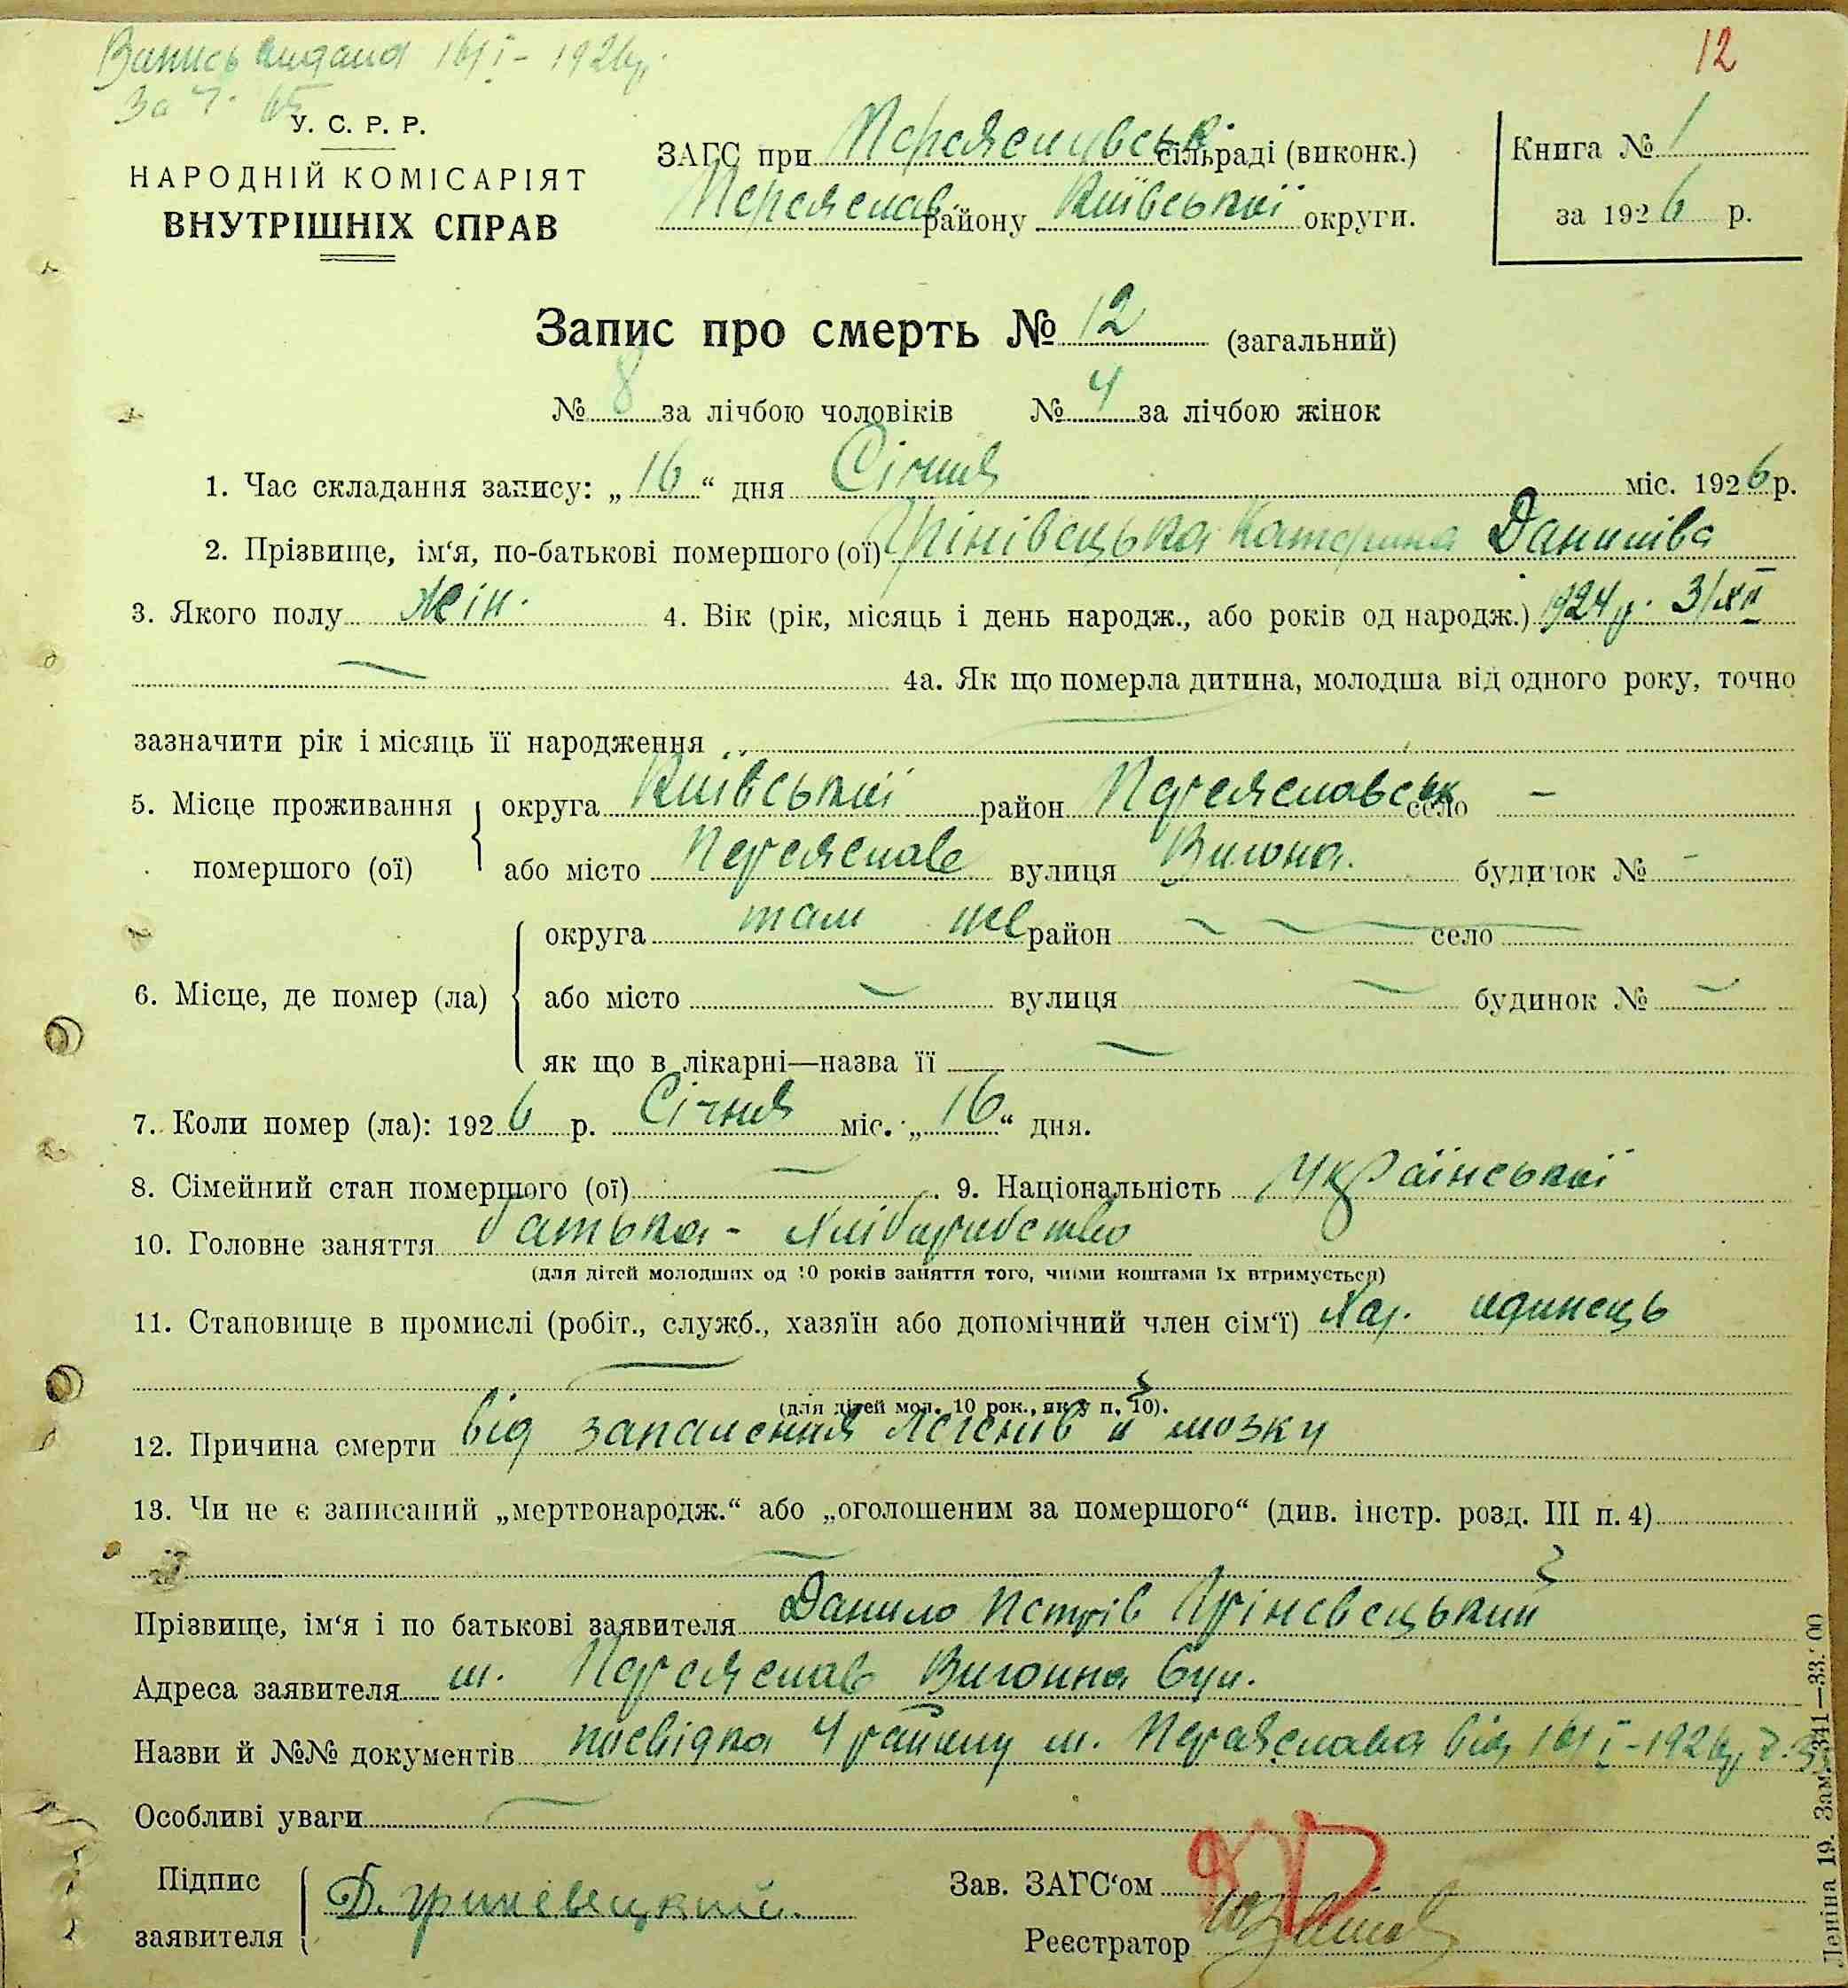 Випись видана 16/I - 1926 р.
За Ч. 65
12
У. С. Р. Р.
НАРОДНІЙ КОМІСАРІЯТ
ВНУТРІШНІХ СПРАВ
ЗАГС при Переяславськ. сільраді (виконк.)
Переяслав. району Київської округи.
Книга № 1
за 1926 р.
Запис про смерть № 12 (загальний)
№ 8 за лічбою чоловіків № 4 за лічбою жінок
1. Час складання запису: „16“ дня Січня міс. 1926 р.
2. Прізвище, ім‘я, по-батькові помершого (ої) Грінівецька Катерина Данилівa
3. Якого полу жін. 4. Вік (рік, місяць і день народж., або років од народж.) 1924 р. 3/XII
4а. Як що померла дитина, молодша від одного року, точно
зазначити рік і місяць її народження
5. Місце проживання помершого (ої) округа Київської район Переяславськ село -
або місто Переяслав вулиця Вигонна. будинок № -
6. Місце, де помер (ла) округа там же район село
або місто вулиця будинок №
як що в лікарні—назва її
7. Коли помер (ла): 1926 р. Січня міс. „16“ дня.
8. Сімейний стан помершого (ої) 9. Національність Української
10. Головне заняття батька - хліборобство
(для дітей молодших од 10 років заняття того, чиїми коштами їх втримується)
11. Становище в промислі (робіт., служб., хазяїн або допомічний член сім‘ї) Хаз. одинець
(для дітей мол. 10 рок., як у п. 10).
12. Причина смерти від запалення легенів й мозку
13. Чи не є записаний „мертвонародж.“ або „оголошеним за помершого“ (див. інстр. розд. III п. 4)
Прізвище, ім‘я і по батькові заявителя Данило Петрів Гріневецький
Адреса заявителя м. Переяслав Вигонна вул.
Назви й №№ документів посвідка 4 району м. Переяслава від 16/I - 1926 р. Ч.
Особливі уваги
Підпис заявителя Д. Гриневецкий.
Зав. ЗАГС‘ом
Реєстратор
Леніна 19. Зам. 341—33. 00